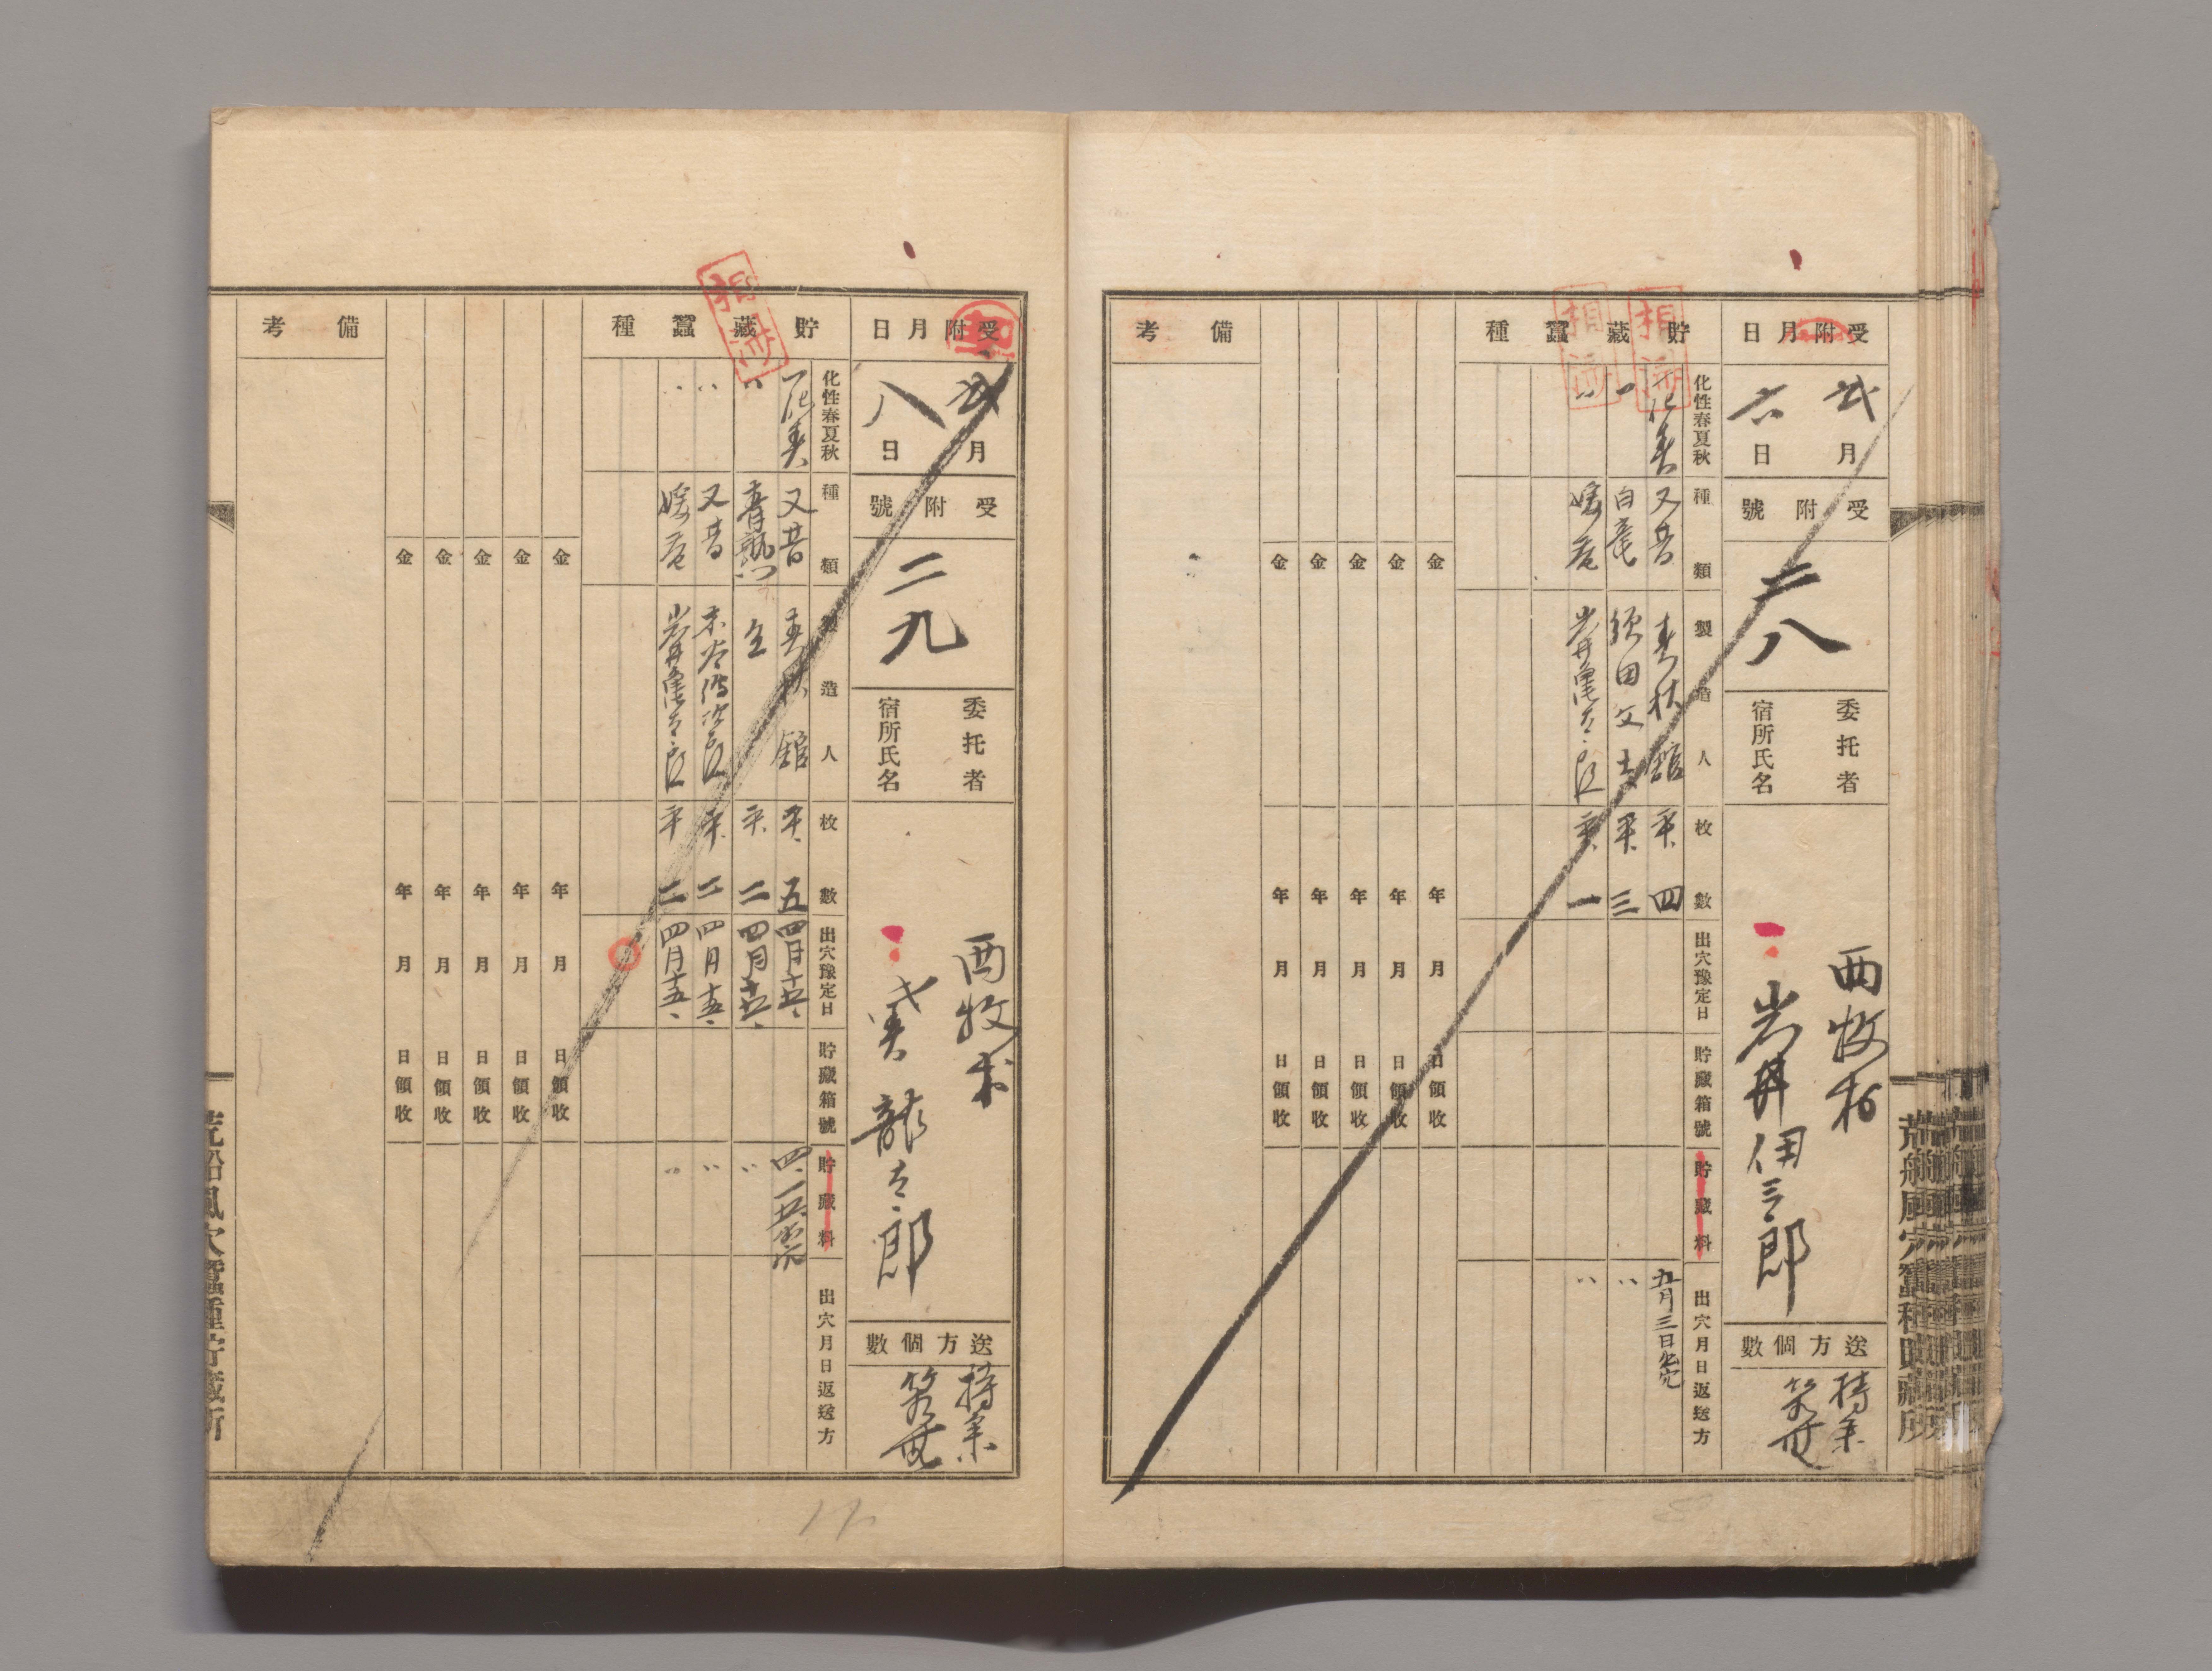 荒船風穴蠶種貯藏所
受附月日
弍月
六日
受附號
二八
委托者
宿所氏名
西牧村
岩井伊三郎
送方個數
持参
貯藏蠶種
化性春夏秋
種類
製造人
枚數
出穴豫定日
貯藏箱號
貯藏料
出穴月日返送方
一化春 又昔 春秋館 平 四 五月三日出穴
白竜 須田文吉 平 三 〃
〃 岩井亀太郎 平 一 〃
金 年 月 日領收
金 年 月 日領收
金 年 月 日領收
金 年 月 日領收
金 年 月 日領收
備考
受附月日
弍月
八日
受附號
二九
委托者
宿所氏名
西牧村
龍太郎
送方個數
持参
貯藏蠶種
化性春夏秋
種類
製造人
枚數
出穴豫定日
貯藏箱號
貯藏料
出穴月日返送方
一化春 又昔 春秋館 平 五 四月十五
〃 青熟 仝 平 二 四月十五 〃
〃 又昔 平 二 四月十五 〃
〃 岩井亀太郎 平 二 四月十五 〃
相済
金 年 月 日領收
金 年 月 日領收
金 年 月 日領收
金 年 月 日領收
金 年 月 日領收
備考
荒船風穴蠶種貯藏所